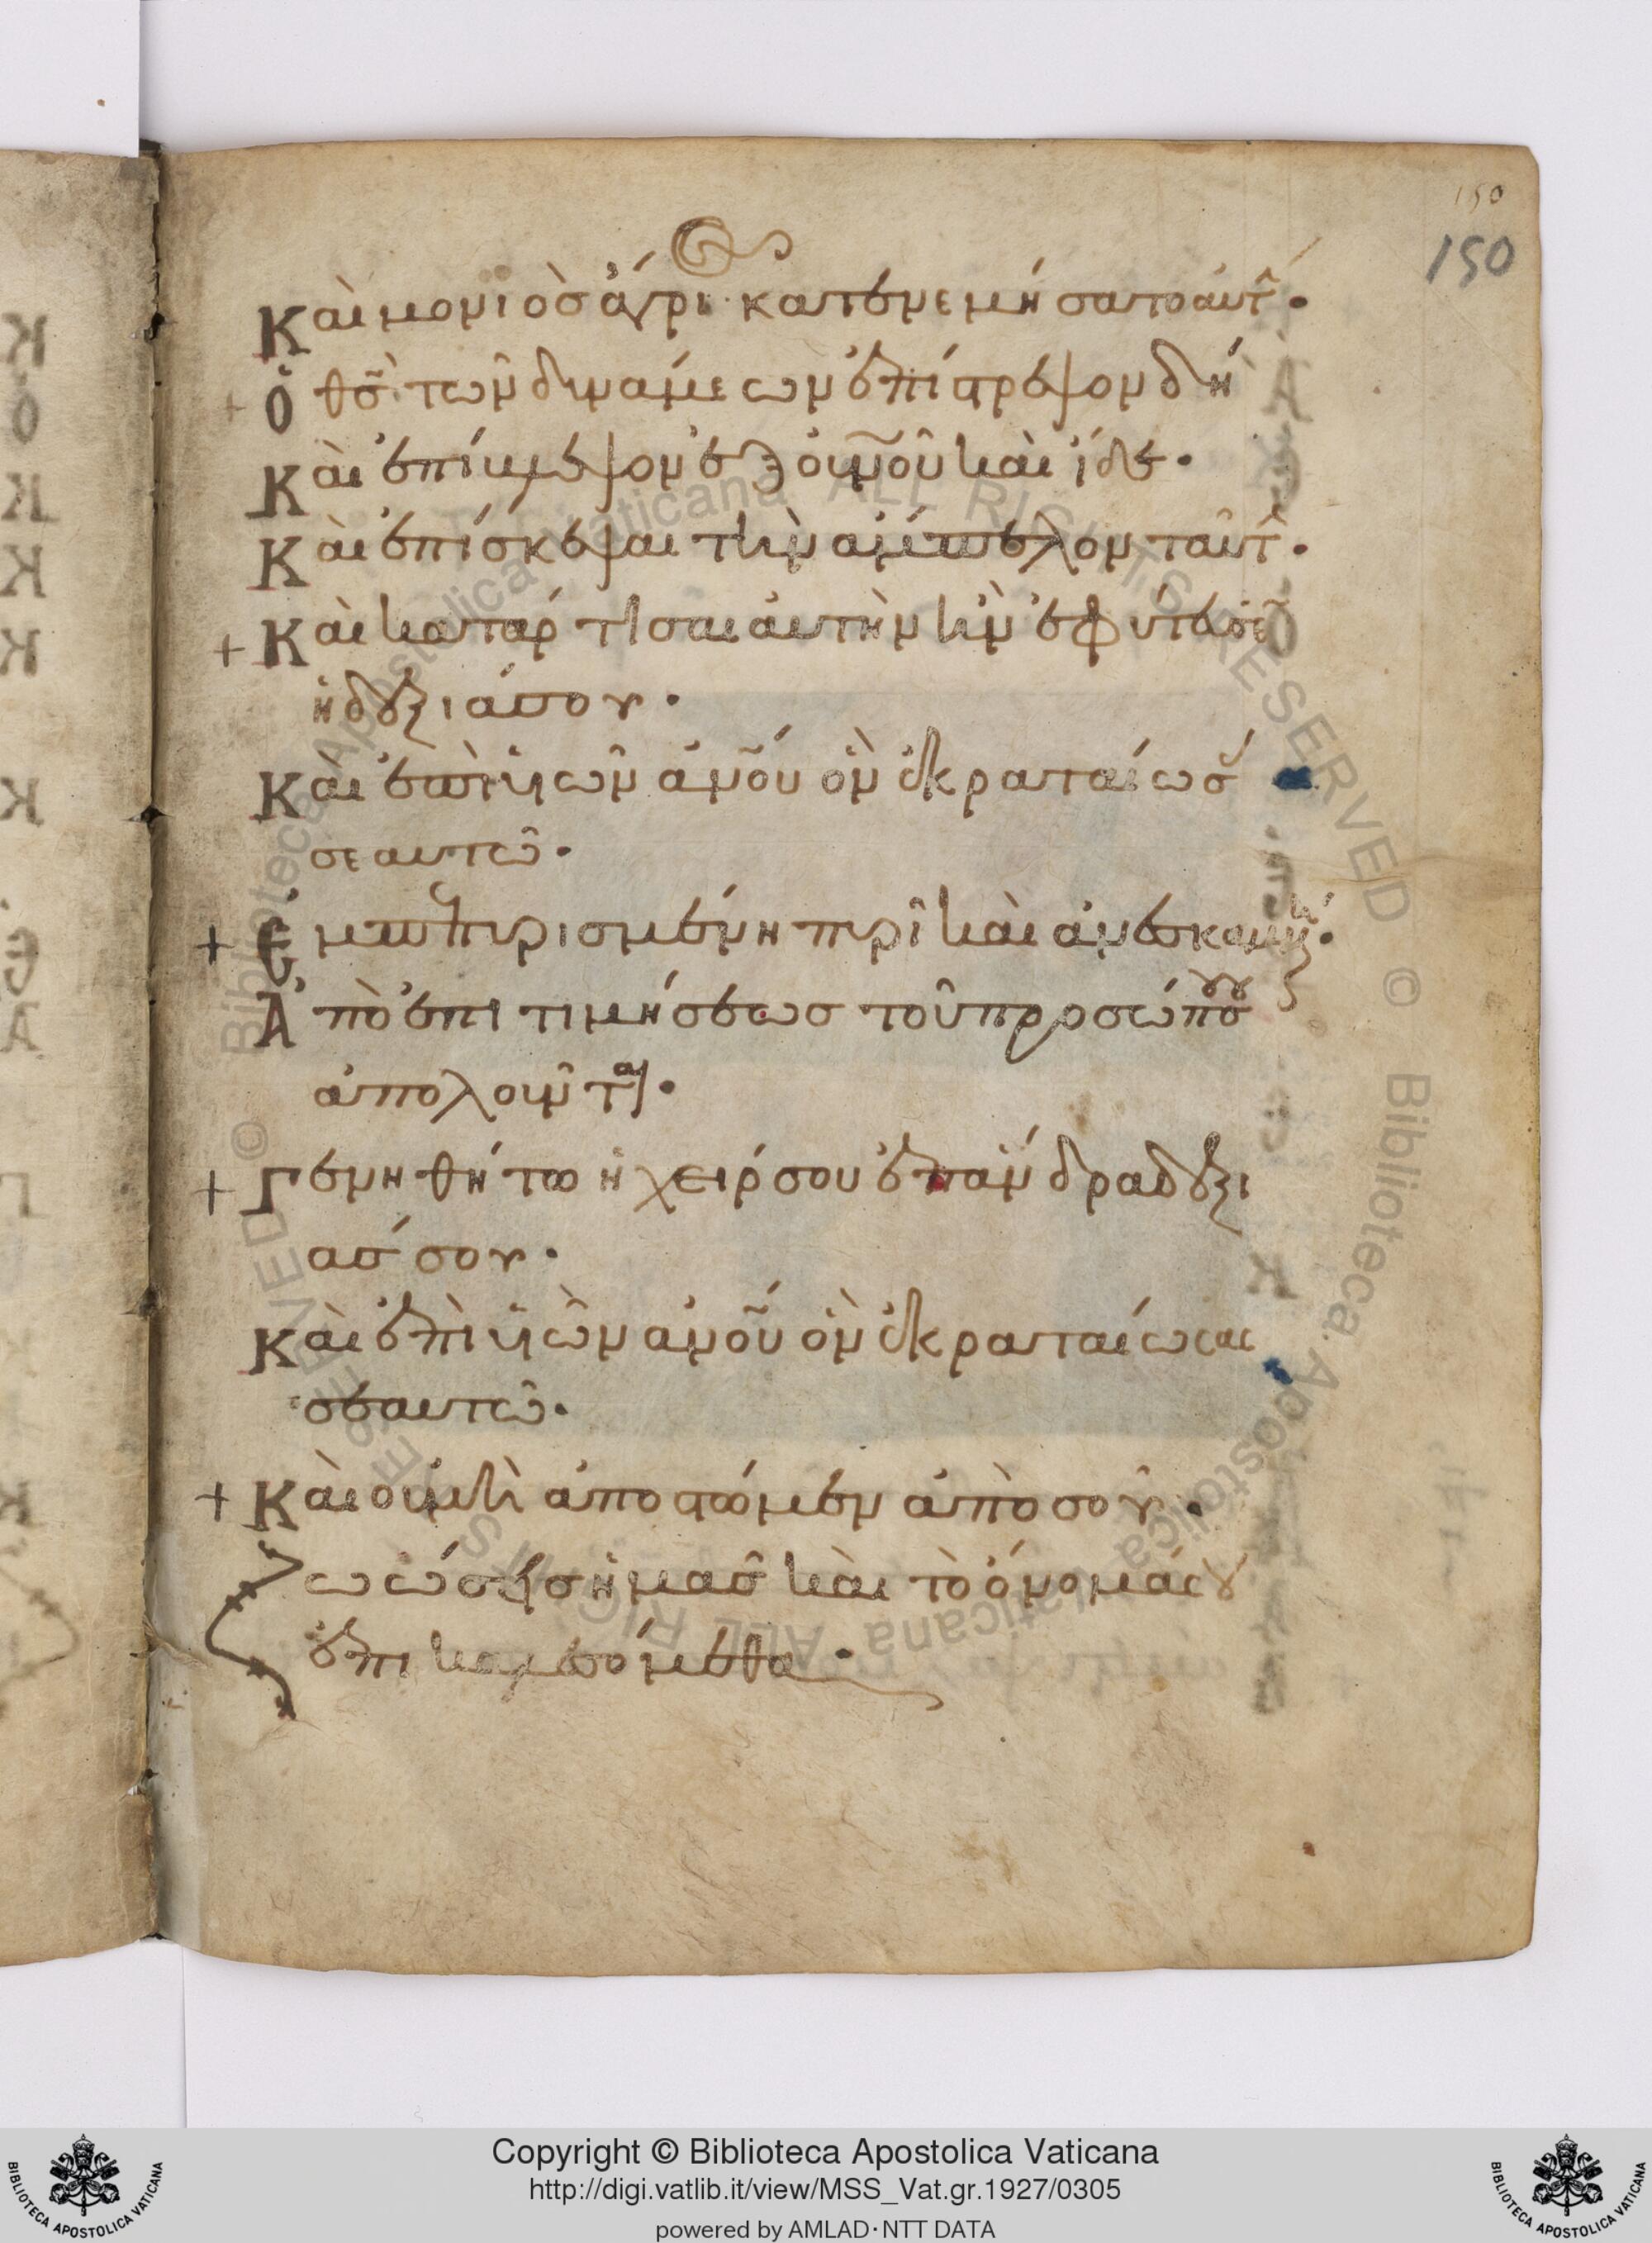 150
150
Καὶ μονιὸσ ἄγρι κατενεμήσατο ἀυτ̑·
+ Ὁ θσ̄ τῶν δυνάμεων ἐπίστρεψον δή
Καὶ ἐπίβλεψον ἐξ οὐνοῦ καὶ ἴδε·
Καὶ ἐπίσκεψαι τὴν ἄμπελον ταύτ·
+ Καὶ κατάρτισαι ἀυτὴν ἣν ἐφύτευσεν
ἡ δεξιάσου·
Καὶ ἐπὶ υἱὼν ἀνοῦ ὃν ἐκραταίωσ
σεαυτῶ·
+ Ἐμπεπυρισμένη πυρὶ καὶ ἀνεσκαμμ·
Ἀπὸ ἐπιτιμήσεωσ τοῦ προσώπου σου
ἀπολοῦνται·
+ Γενηθήτω ἡ χείρ σου ἐπ ἄνδρα δεξι
ασ σου·
Καὶ ἐπὶ υἱὼν ἀνοῦ ὃν ἐκραταίωσασ
σεαυτῶ·
+ Καὶ οὐ μὴ ἀποστῶμεν ἀπὸ σοῦ·
Ζωώσησ ἡμᾶσ καὶ τὸ ὄνομά σου
ἐπικαλεσόμεθα·
Copyright © Biblioteca Apostolica Vaticana
http://digi.vatlib.it/view/MSS_Vat.gr.1927/0305
powered by AMLAD·NTT DATA
BIBLIOTECA APOSTOLICA VATICANA
BIBLIOTECA APOSTOLICA VATICANA